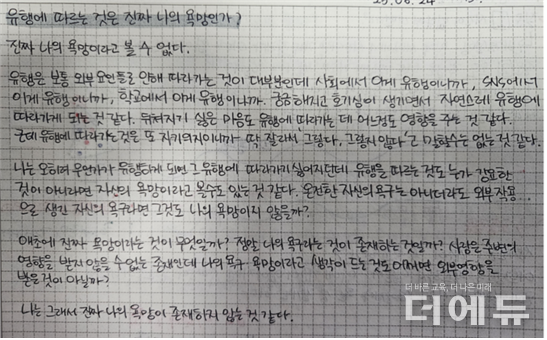 25.06.24
유행에 따르는 것은 진짜 나의 욕망인가?
진짜 나의 욕망이라고 볼 수 없다.
유행은 보통 외부 요인들로 인해 따라가는 것이 대부분인데 사회에서 이게 유행이니까, SNS에서
이게 유행이니까, 학교에서 이게 유행이니까. 궁금해지고 호기심이 생기면서 자연스레 유행에
따라가게 되는 것 같다. 뒤쳐지기 싫은 마음도 유행에 따라가는 데 어느정도 영향을 주는 것 같다.
근데 유행에 따라가는 것은 또 자기의지이니까 딱 잘라서 '그렇다, 그렇지 않다'고 말할수는 없는 것 같다.
나는 오히려 무언가가 유행하게 되면 그 유행에 따라가기 싫어지던데 유행을 따르는 것도 누가 강요한
것이 아니라면 자신의 욕망이라고 볼수도 있는 것 같다. 온전한 자신의 욕구는 아니더라도 외부 작용
으로 생긴 자신의 욕구라면 그것도 나의 욕망이지 않을까?
애초에 진짜 욕망이라는 것이 무엇일까? 정말 나의 욕구라는 것이 존재하는 것일까? 사람은 주변의
영향을 받지 않을 수 없는 존재인데 나의 욕구 욕망이라고 생각이 드는 것도 어쩌면 외부영향을
받은 것이 아닐까?
나는 그래서 진짜 나의 욕망이 존재하지 않는 것 같다.
더 바른 교육, 더 나은 미래
더에듀